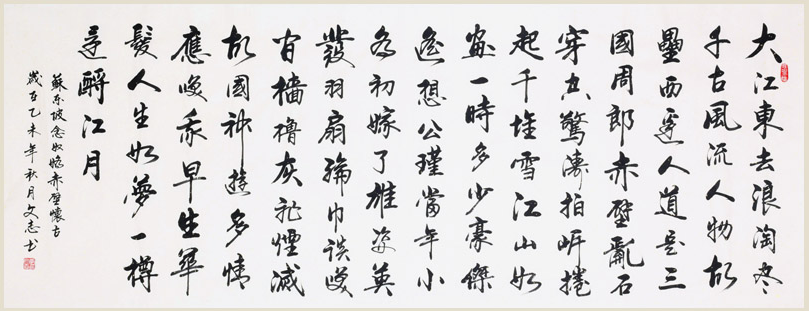 大江東去浪淘尽
千古風流人物故
壘西邊人道是三
國周郎赤壁亂石
穿空驚濤拍岸捲
起千堆雪江山如
畫一時多少豪傑
遙想公瑾當年小
喬初嫁了雄姿英
發羽扇綸巾談咲
间檣櫓灰飛煙滅
故國神遊多情
應咲我早生華
髮人生如夢一樽
還酹江月
蘇東坡念奴嬌赤壁懷古
歲在乙未年秋月文志书